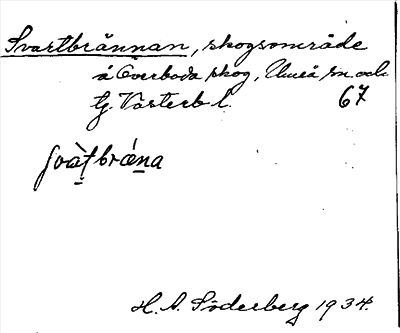 Svartbrännan, skogsområde
å Överboda skog, Umeå sn och
tg. Västerb l. 67
svàtbrǽna
H. A. Söderberg 1934.